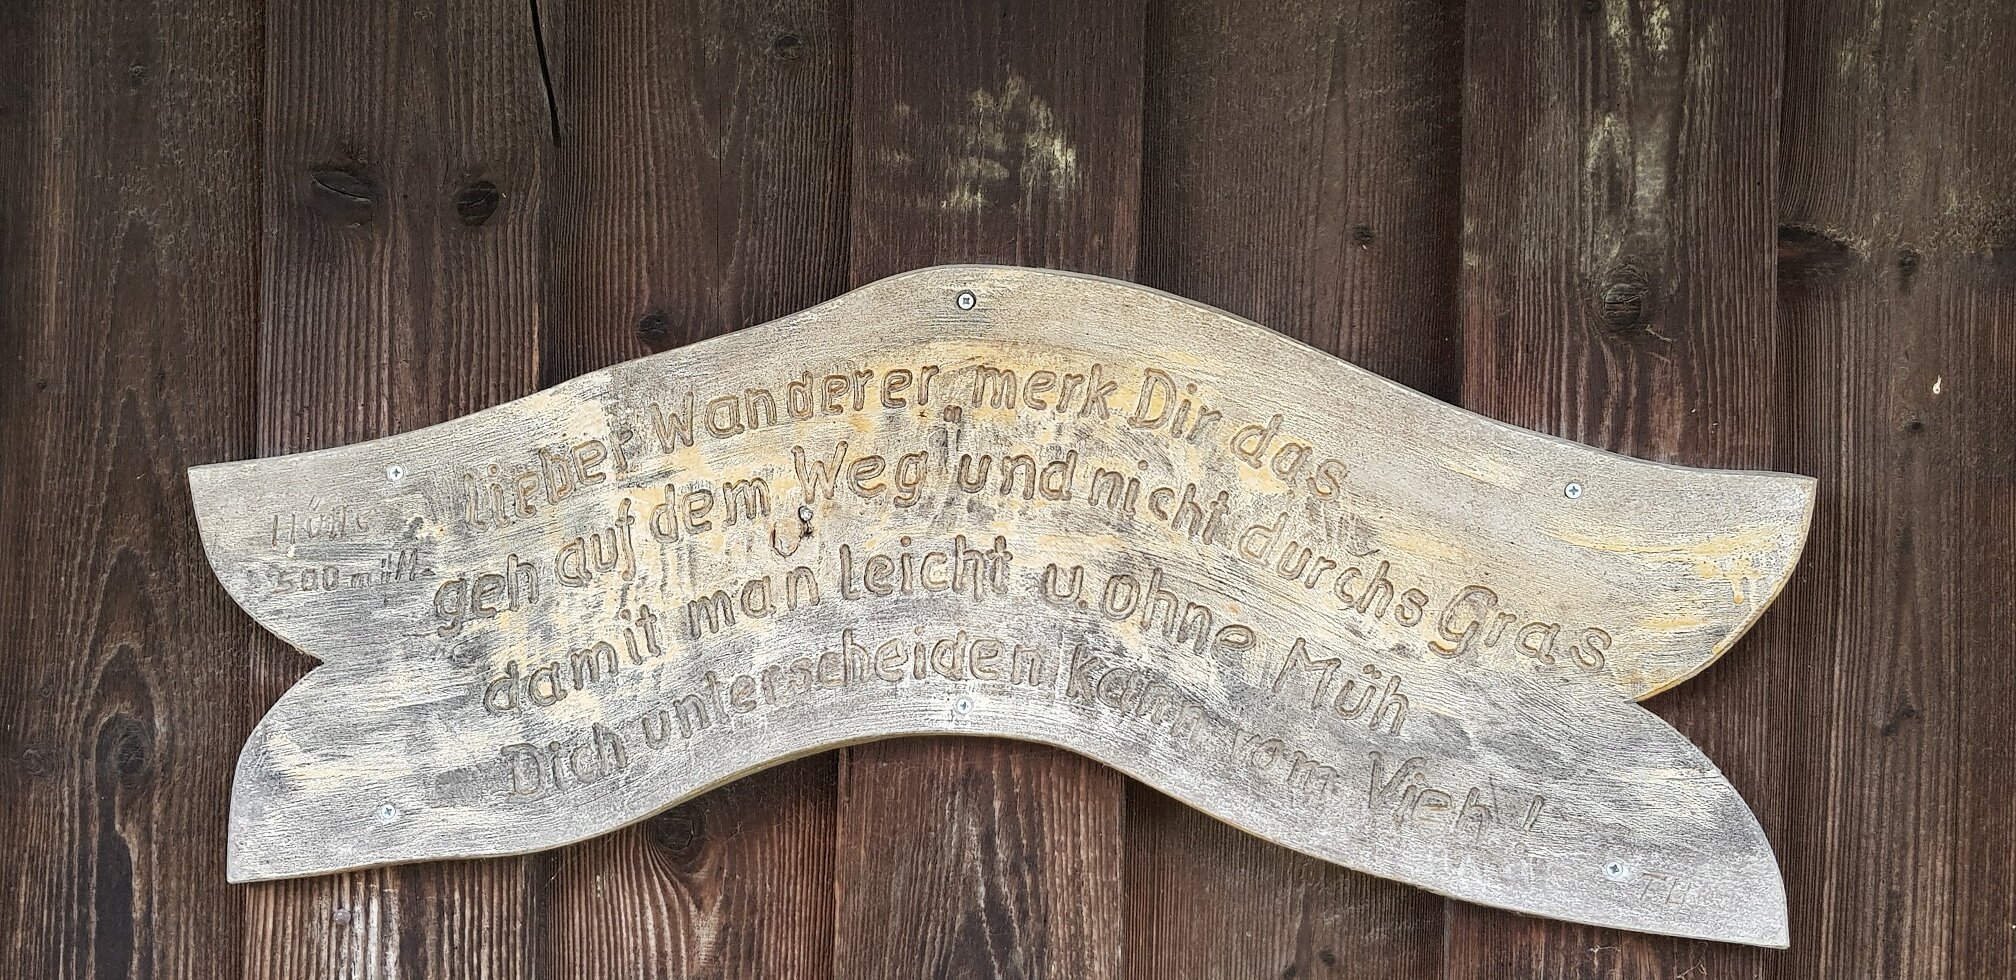 Lieber Wanderer merk Dir das
geh auf dem Weg" und nicht durchs Gras
damit man leicht u. ohne Müh
Dich unterscheiden kann vom Vieh!